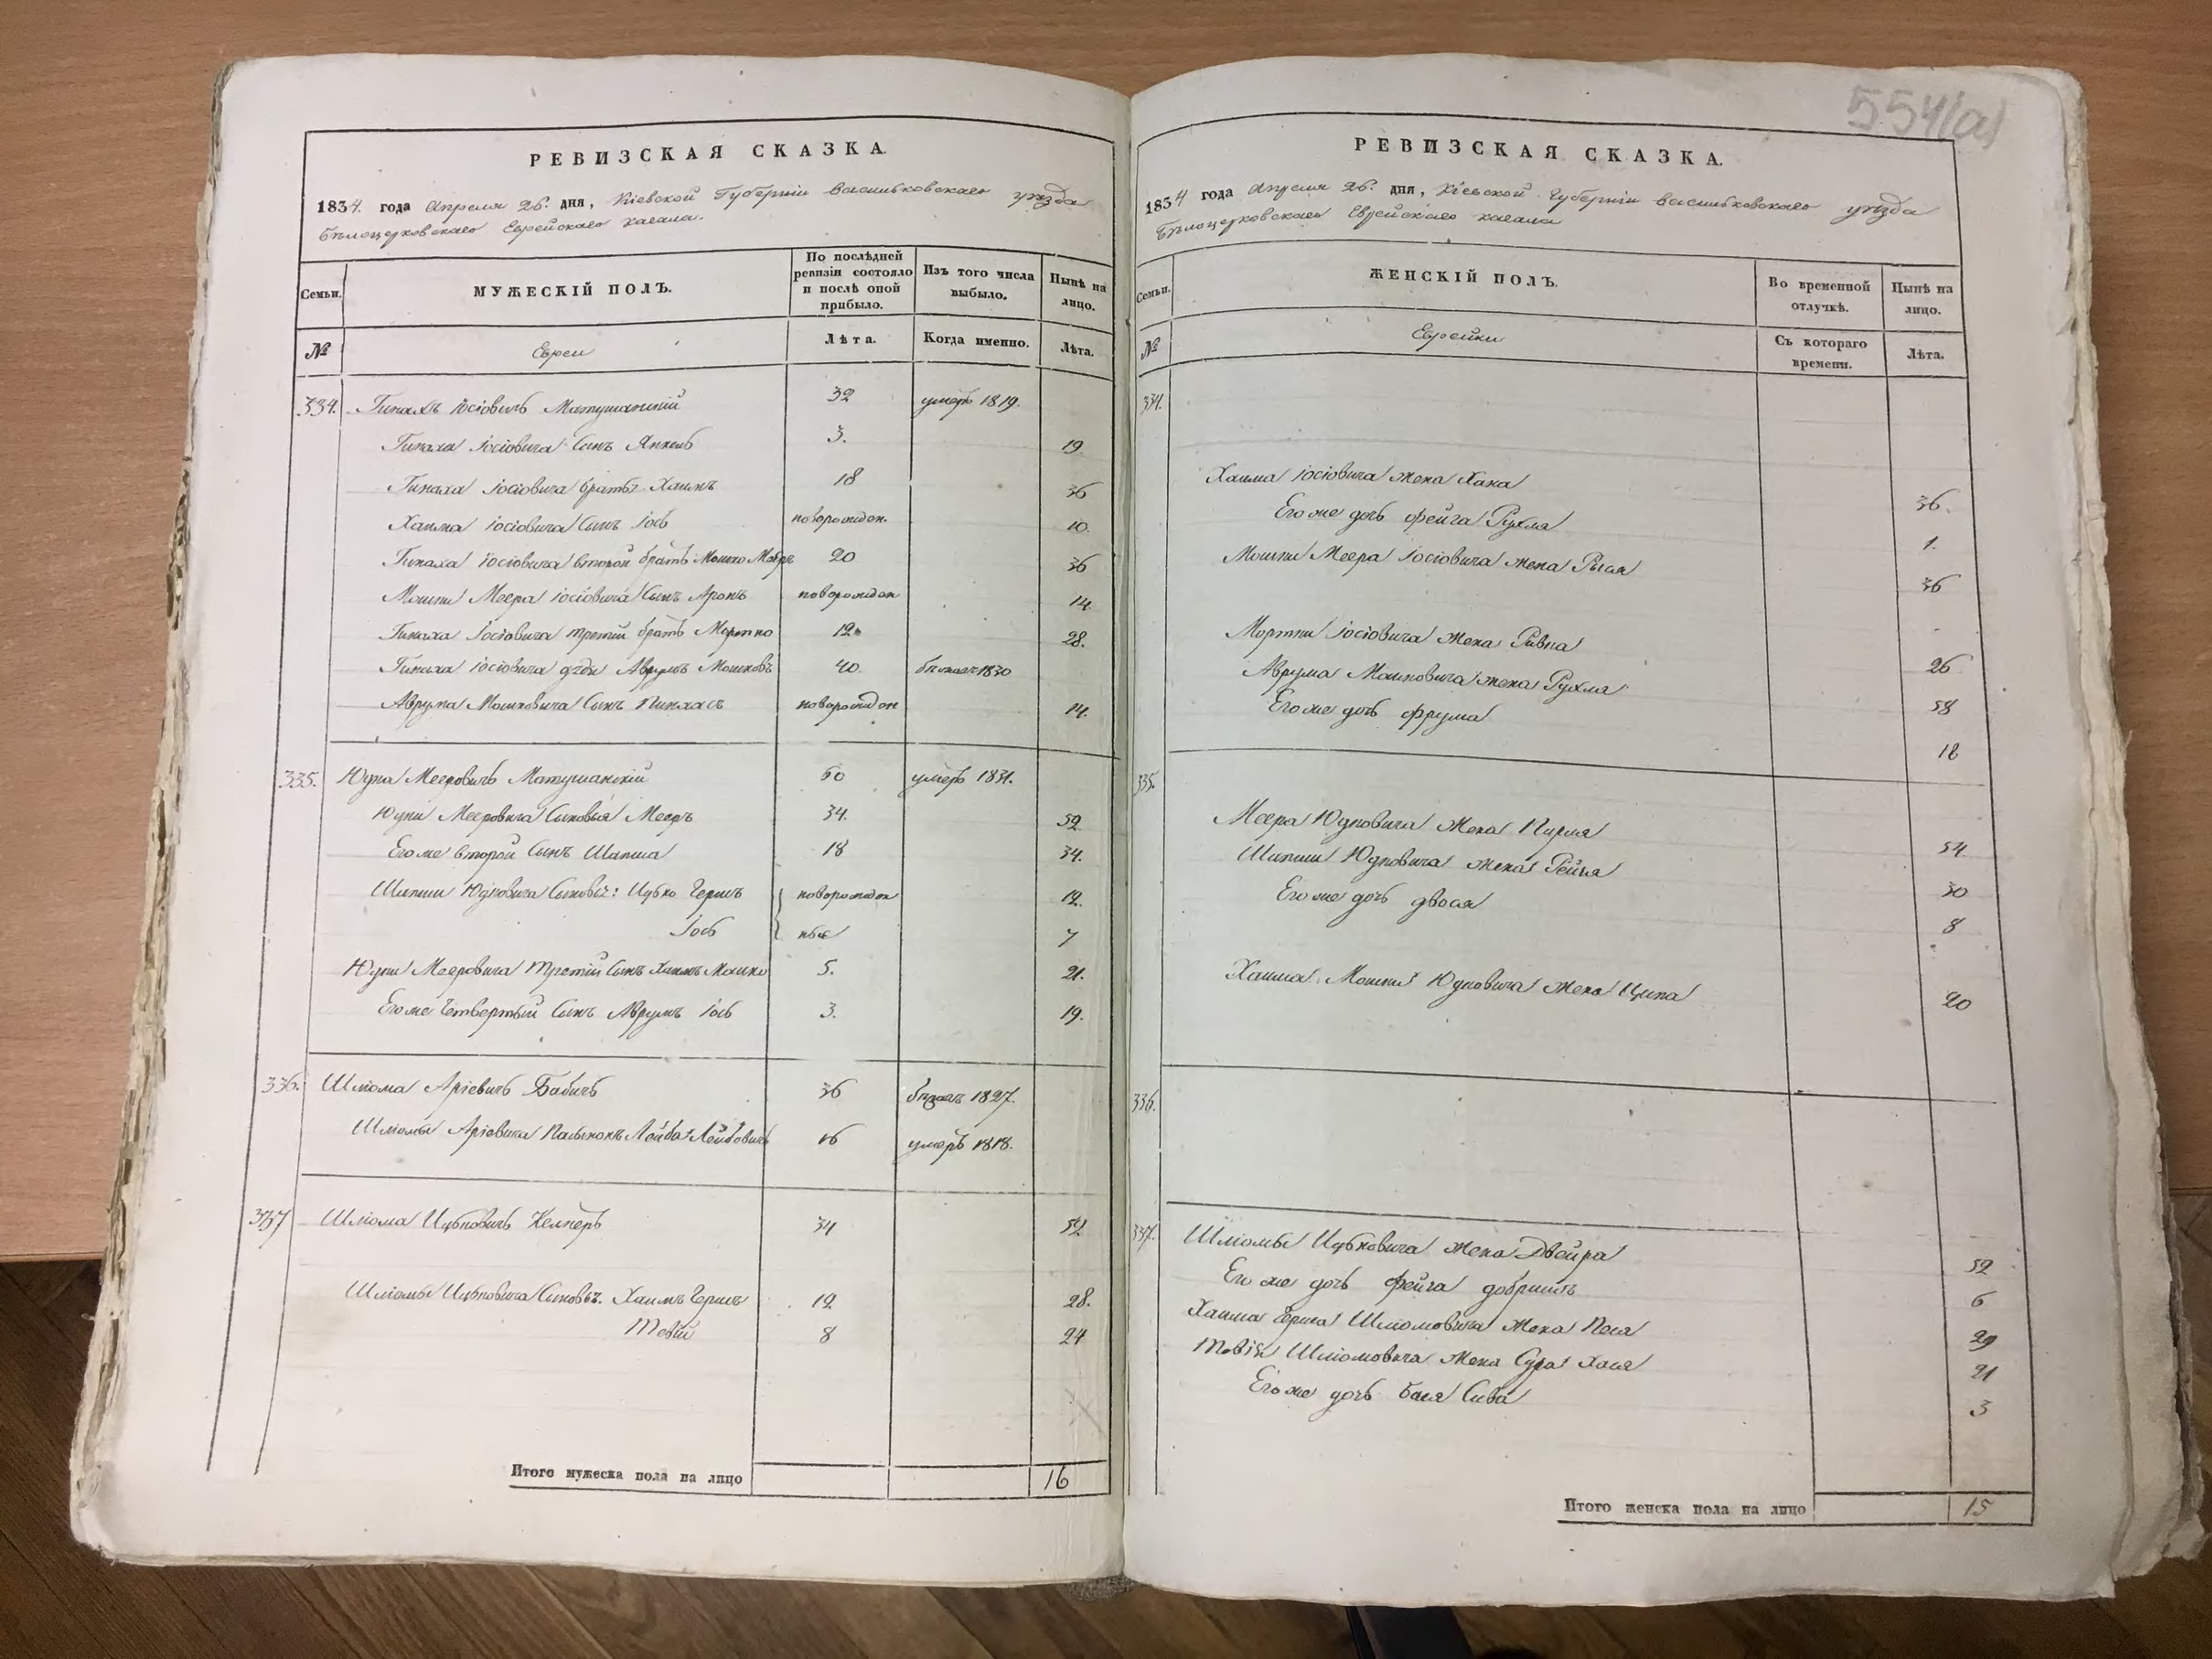 РЕВИЗСКАЯ СКАЗКА.
1834. года Апреля 26. дня, Кіевской Губерніи Васильковскаго уѣзда
Бѣлоцерковскаго Еврейскаго кагала.
Семьи.
МУЖЕСКІЙ ПОЛЪ.
По послѣдней ревизіи состояло и послѣ оной прибыло.
Изъ того числа выбыло.
Нынѣ на лицо.
№
Евреи
Лѣта.
Когда именно.
Лѣта.
334. Гинахъ Іосіовичъ Матушанскій 32 умеръ 1819.
Гинаха Іосіовича Сынъ Янкель 3. 19
Гинаха Іосіовича братъ Хаимъ 18 36
Хаима Іосіовича Сынъ Іось новорожден. 10.
Гинаха Іосіовича второй братъ Мошко Мееръ 20 36
Мошки Меера Іосіовича Сынъ Аронъ новорожден 14.
Гинаха Іосіовича третій братъ Мортко 12. 28.
Гинаха Іосіовича дядя Аврумъ Мошковъ 40. бѣжалъ 1830
Аврума Мошковича Сынъ Пинхасъ новорожден 14.
335. Юдка Мееровичъ Матушанскій 60 умеръ 1831.
Юдки Мееровича Сыновья Мееръ 34. 52
Его же второй Сынъ Шапша 18 34.
Шапши Юдковича Сыновья: Ицко Гершъ новорожден 12.
Іось ные 7
Юдки Мееровича третій Сынъ Хаимъ Мошко 5. 21.
Его же четвертый Сынъ Аврумъ Іось 3. 19.
336. Шліома Аріевичъ Бабичъ 36 бѣжалъ 1827.
Шліомы Аріевича Пасынокъ Лейба Лейбовичъ 16 умеръ 1818.
337 Шліома Ицковичъ Келнеръ 34 52
Шліомы Ицковича Сыновья. Хаимъ Гершъ 12 28.
Товій 8 24
Итого мужеска пола на лицо 16
554(а)
РЕВИЗСКАЯ СКАЗКА.
1834 года Апреля 26. дня, Кіевской Губерніи Васильковскаго уѣзда
Бѣлоцерковскаго Еврейскаго кагала
Семьи.
ЖЕНСКІЙ ПОЛЪ.
Во временной отлучкѣ.
Нынѣ на лицо.
№
Еврейки
Съ котораго времени.
Лѣта.
334.
Хаима Іосіовича жена Хана 36.
Его же дочь Фейга Рухля 1.
Мошки Меера Іосіовича жена Рыся 36
Мортки Іосіовича жена Ривка 26
Аврума Мошковича жена Рухля 58
Его же дочь Фрума 18
335.
Меера Юдковича жена Пирля 54.
Шапши Юдковича жена Рейзя 30
Его же дочь Двося 8
Хаима Мошки Юдковича жена Ципа 20
336.
337. Шліомы Ицковича жена Двейра 52
Его же дочь Фейга Добришъ 6
Хаима Герша Шліомовича жена Песя 29
Товія Шліомовича жена Сура Хася 21
Его же дочь Бася Сива 3
Итого женска пола на лицо 15